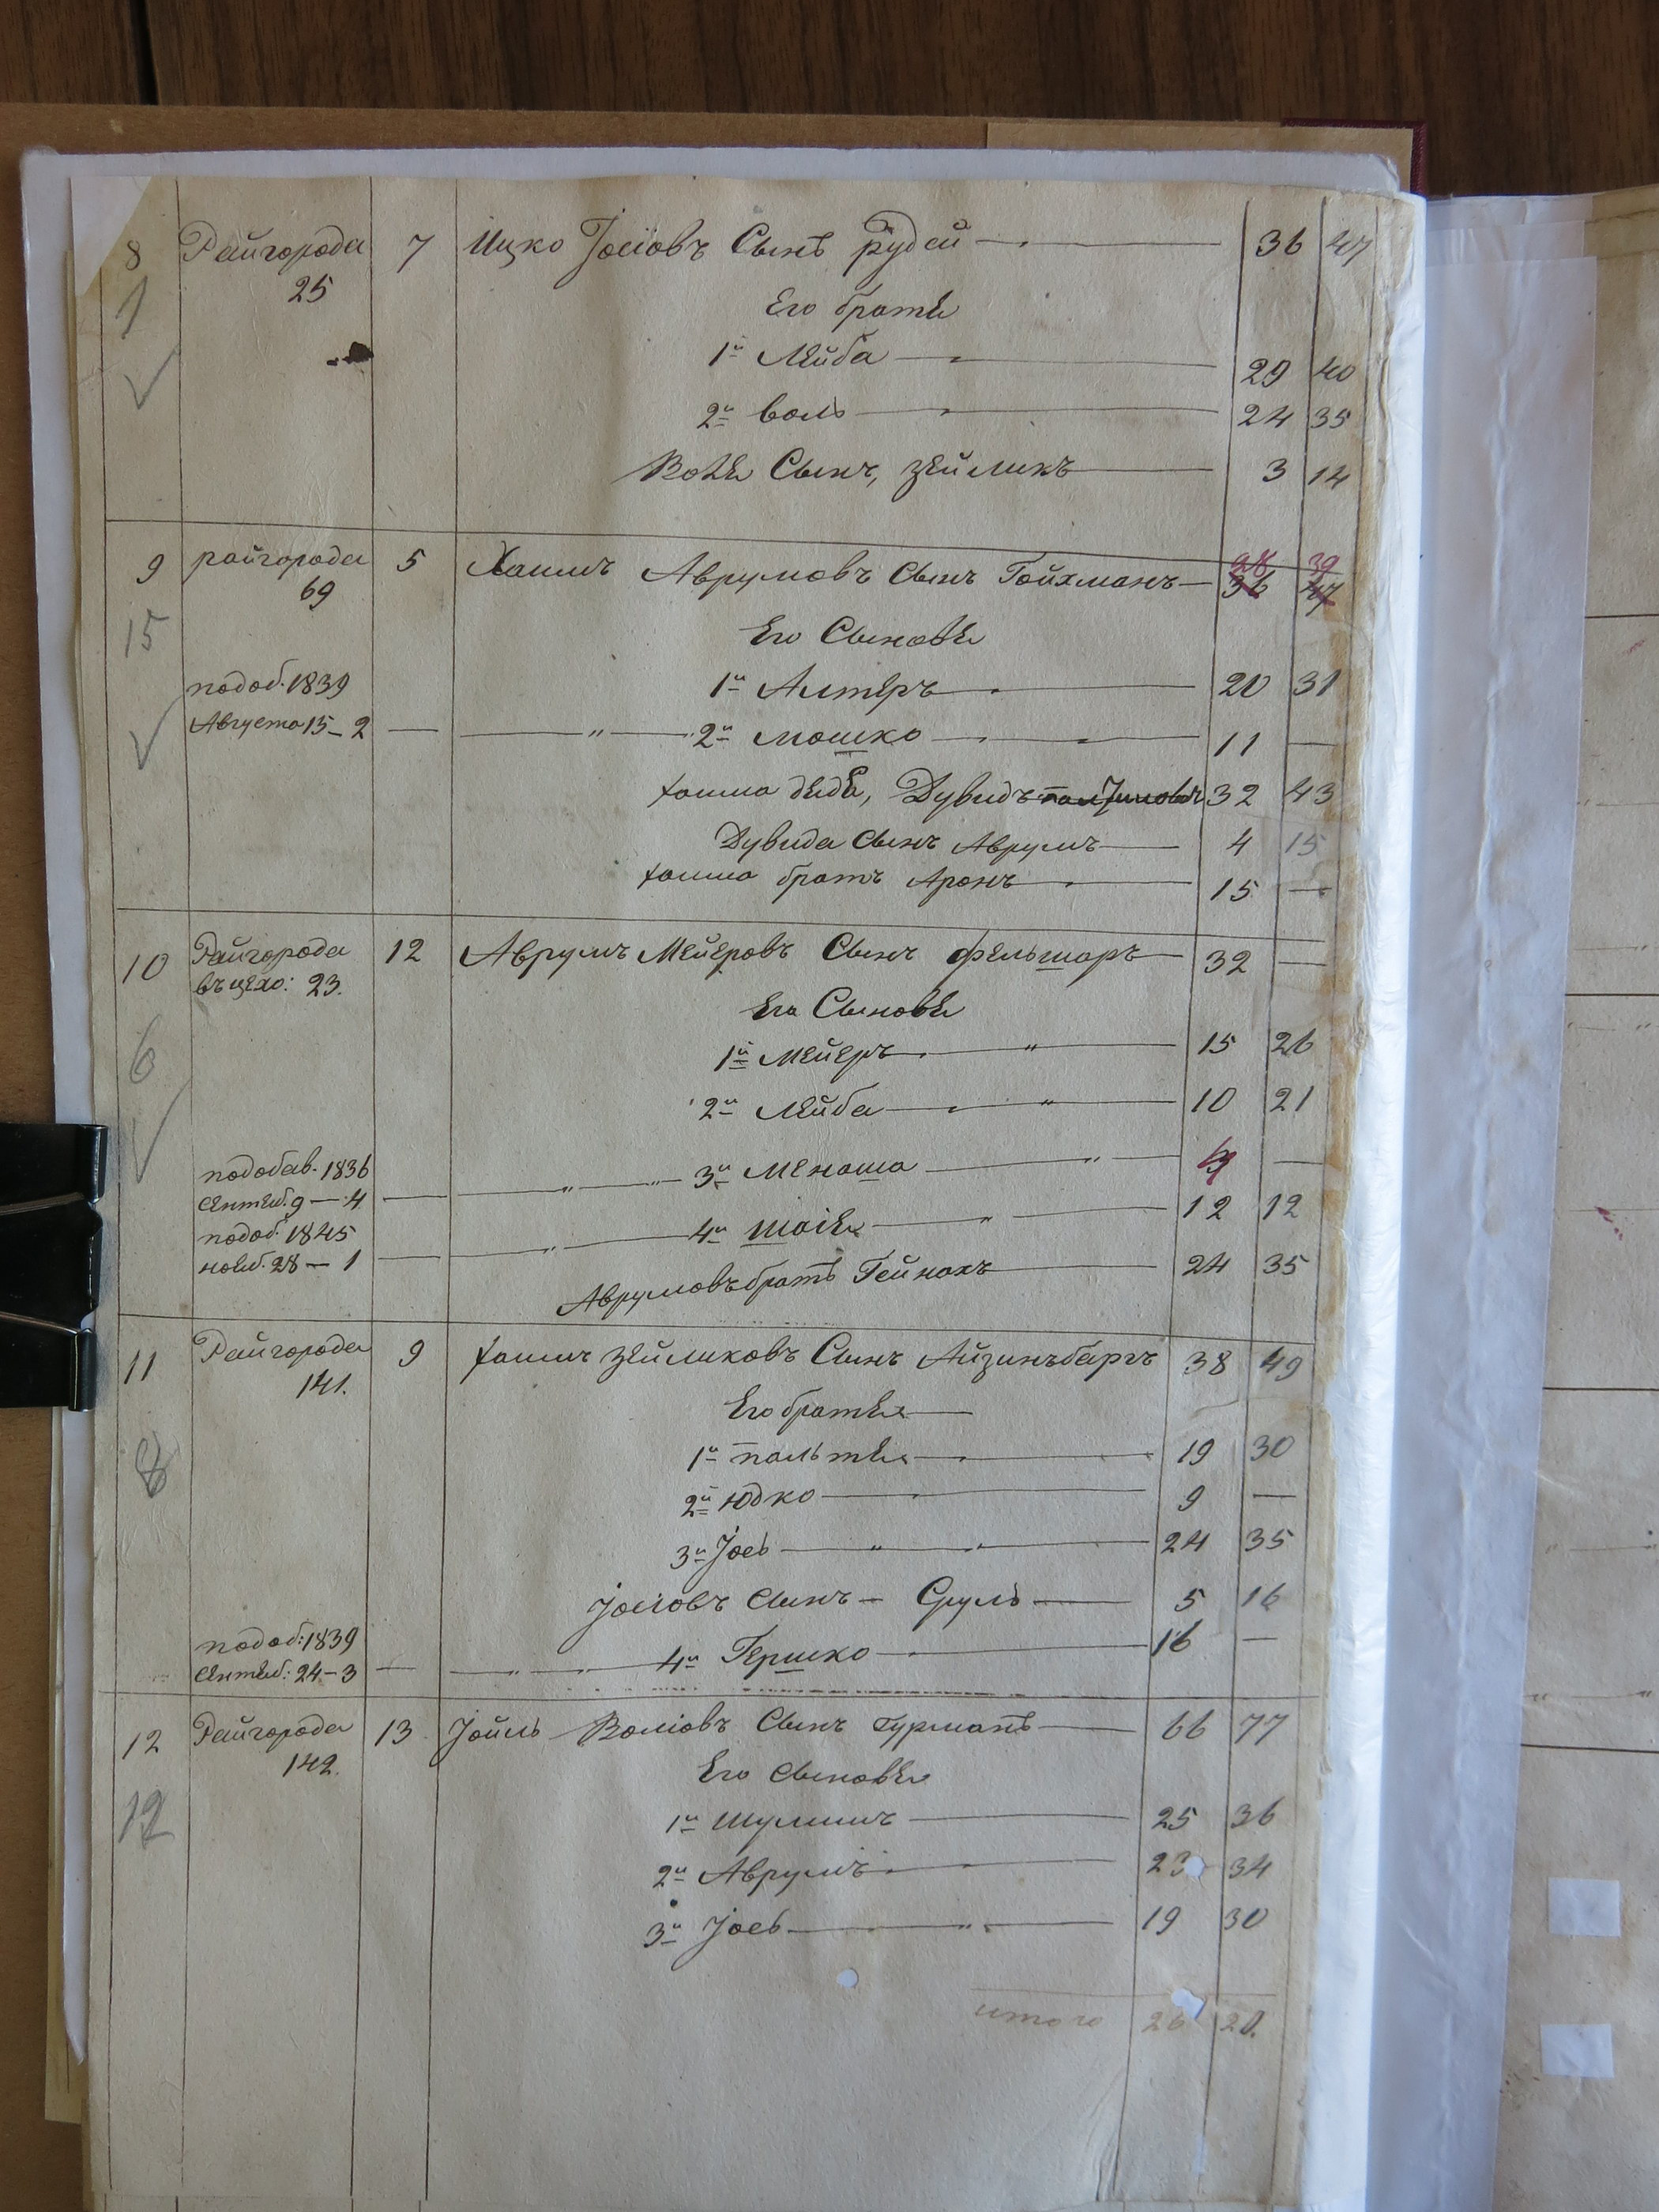 8 Райгорода 7 Ицко Іосіовъ Сынъ Рудой — 36 47
1 25
Его братья
1й Лейба — 29 40
2йВоль — 24 35
Воля Сынъ, Зейликъ — 3 14
9 райгорода 5 Хаимъ Аврумовъ Сынъ Гойхманъ — 28 39
69 36 47
15 Его Сыновья
подоб. 1839 1й Алтеръ — 20 31
Августа 15 — 2 — " — 2й Мошко — 11 —
Хаима дядя, Дувидъ 32 43
Дувида Сынъ Аврумъ — 4 15
Хаима братъ Аронъ — 15 —
10 Райгорода 12 Аврумъ Мейеровъ Сынъ Фельшаръ — 32 —
въ цехо: 23.
Его Сыновья
6 1й Мейеръ — " — 15 26
2й Лейба — " — 10 21
подобав. 1836 3й Менаша — " — —
Сентяб. 9 — 4 — " —
подоб. 1845 4й Шоія — " — 12 12
нояб. 28 — 1 — " —
Аврумовъ братъ Гейнохъ — 24 35
11 Райгорода 9 Хаимъ Зейликовъ Сынъ Айзинъбаргъ 38 49
141.
Его братья —
8 1й пальтея — 19 30
2й Юдко — 9 —
3й Іось — " — " — 24 35
Іосіовъ Сынъ — Сруль — 5 16
подоб: 1839 4й Гершко — 16 —
Сентяб: 24 — 3 — " —
12 Райгорода 13 Іойль Воліовъ Сынъ Гурманъ — 66 77
142.
Его Сыновья
12 1й Шулимъ — 25 36
2й Аврумъ — 23 34
3й Іось — " — 19 30
итого 26 20.